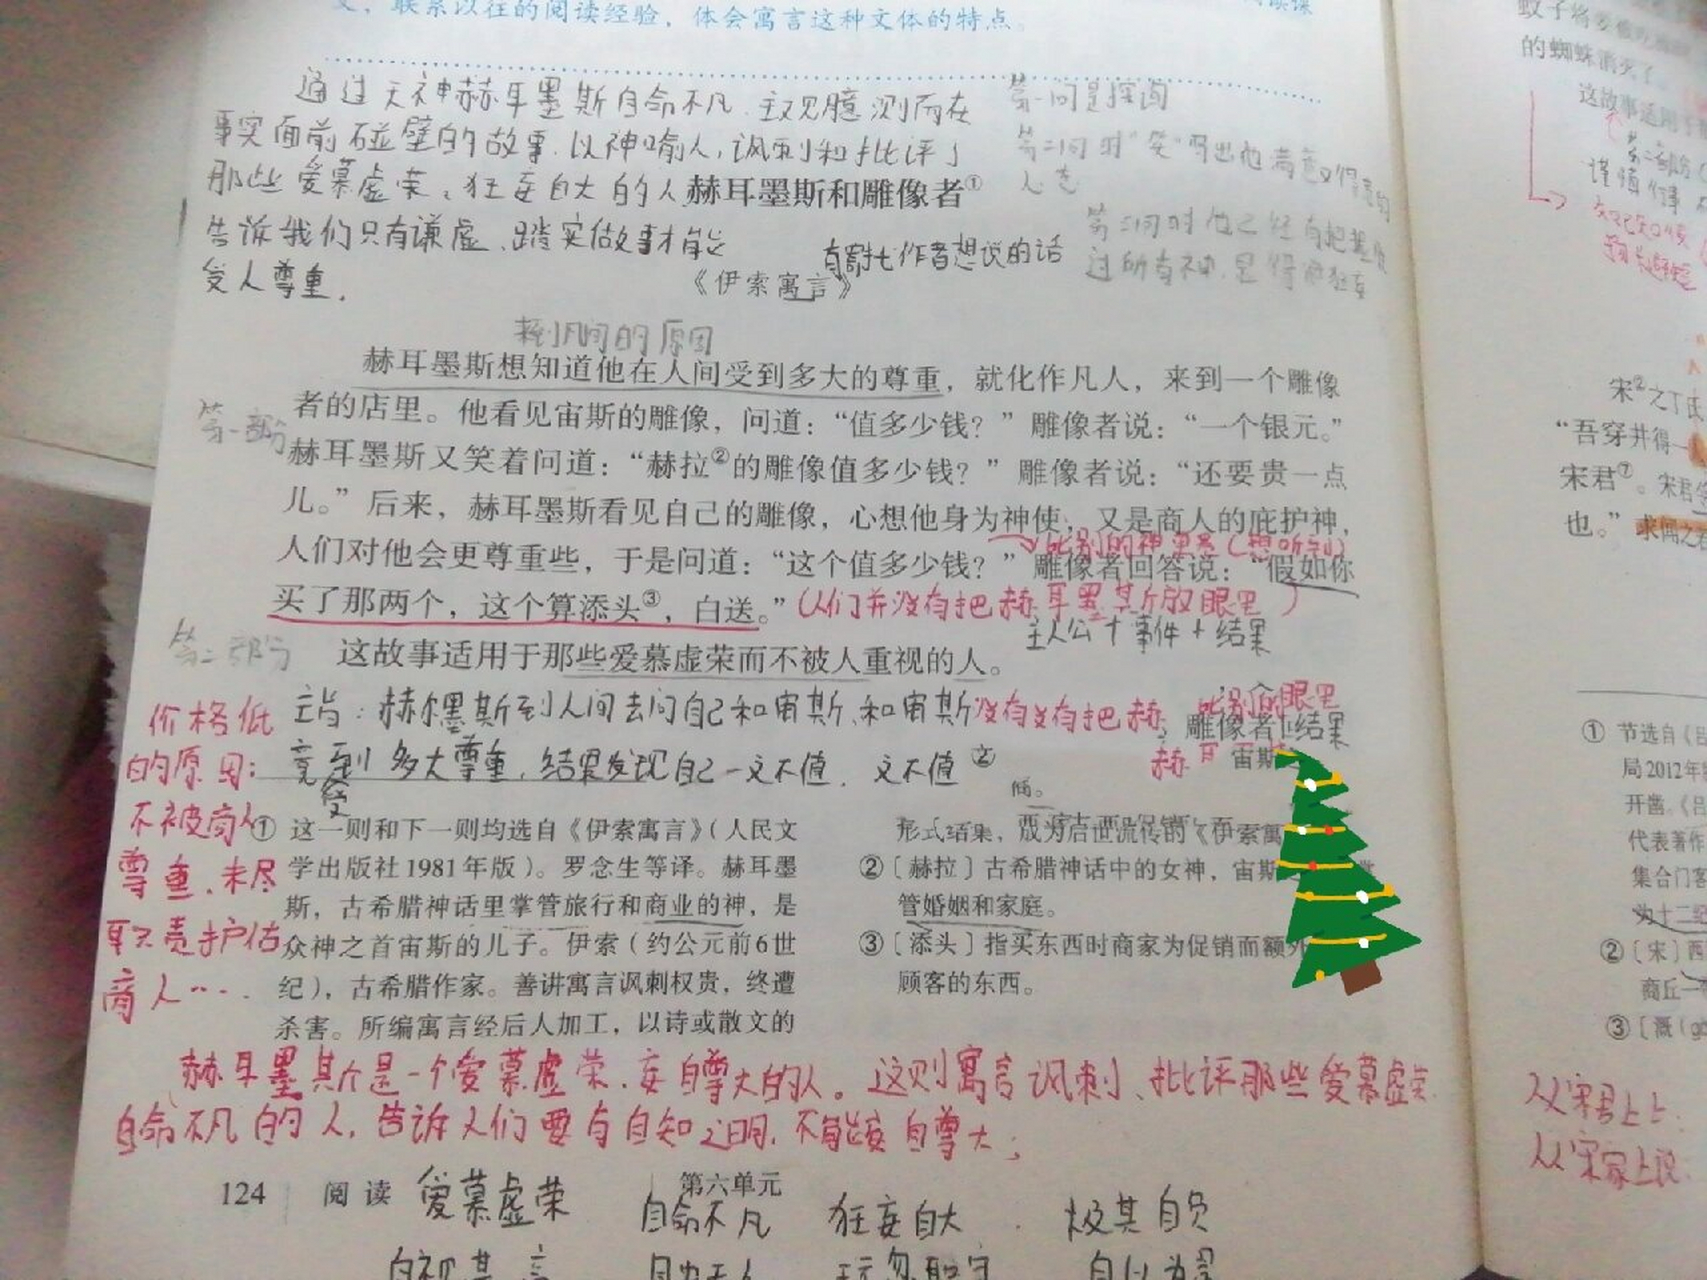 文，联系以往的阅读经验，体会寓言这种文体的特点。
通过天神赫耳墨斯自命不凡、主观臆测而在
事实面前碰壁的故事，以神喻人，讽刺和批评了
那些爱慕虚荣、狂妄自大的人
告诉我们只有谦虚、踏实做事才能
受人尊重。
第一问是探询
第二问时“笑”写出他满意又得意的
心态
第三问时他已经
过所有神，是
赫耳墨斯和雕像者①
作者想说的话
《伊索寓言》
来到凡间的原因
第一部分
赫耳墨斯想知道他在人间受到多大的尊重，就化作凡人，来到一个雕像
者的店里。他看见宙斯的雕像，问道：“值多少钱？”雕像者说：“一个银元。”
赫耳墨斯又笑着问道：“赫拉②的雕像值多少钱？”雕像者说：“还要贵一点
儿。”后来，赫耳墨斯看见自己的雕像，心想他身为神使，又是商人的庇护神，
比别的神更高（想听到）
人们对他会更尊重些，于是问道：“这个值多少钱？”雕像者回答说：“假如你
买了那两个，这个算添头③，白送。”
（人们并没有把赫耳墨斯放眼里）
主人公＋事件＋结果
第二部分
这故事适用于那些爱慕虚荣而不被人重视的人。
主旨：赫尔墨斯到人间去问自己和宙斯、和宙斯
没有没有把赫
眼里
雕像者 结果
赫耳
宙斯
竟到多大尊重，结果发现自己一文不值，文不值
受
价格低
的原因：
不被商人
尊重，未尽
职责护佑
商人…
① 这一则和下一则均选自《伊索寓言》（人民文
学出版社1981年版）。罗念生等译。赫耳墨
斯，古希腊神话里掌管旅行和商业的神，是
众神之首宙斯的儿子。伊索（约公元前6世
纪），古希腊作家。善讲寓言讽刺权贵，终遭
杀害。所编寓言经后人加工，以诗或散文的
形式结集，成为后世流传的《伊索寓
②〔赫拉〕古希腊神话中的女神，宙斯
管婚姻和家庭。
③〔添头〕指买东西时商家为促销而额外
顾客的东西。
赫耳墨斯是一个爱慕虚荣、妄自尊大的人。这则寓言讽刺、批评那些爱慕虚荣、
自命不凡的人，告诉人们要有自知之明，不能妄自尊大；
124 阅读 第六单元
爱慕虚荣 自命不凡 狂妄自大 极其自负
目中无人 玩忽职守 自以为是
蚊子将要
的蜘蛛消灭了。
这故事适用于
第二部分
谨慎行事
宋②之丁氏
“吾穿井得一人
宋君⑦。宋君
也。”求闻之若
① 节选自《吕
局2012年
开凿。《吕
代表著作
集合门客
为十二纪
②〔宋〕西
商丘一
③〔溉（gà
从宋君上
从宋家上说